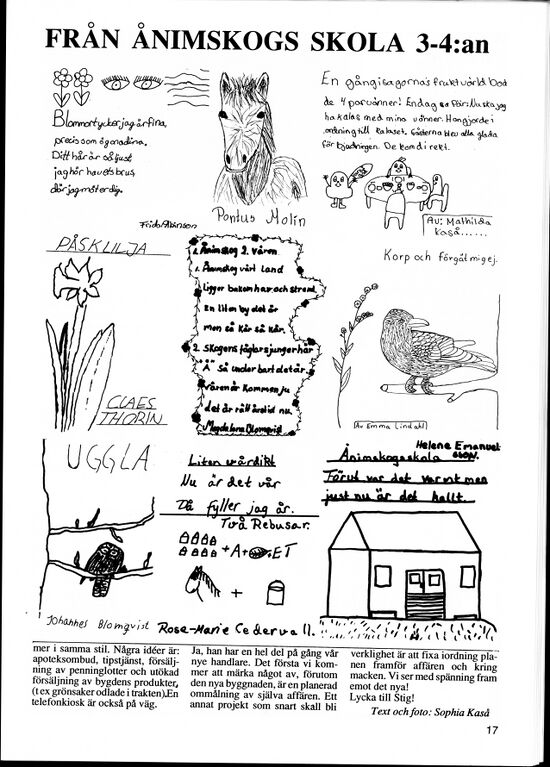 FRÅN ÅNIMSKOGS SKOLA 3-4:an
Blommor tycker jag är fina,
precis som ögonen dina.
Ditt hår är så ljust
jag hör havets brus
där jag möter dig.
Frida Albinson
Pontus Molin
En gång i sagornas fruktvärld bod
de 4 parvänner! En dag sa Pär: Nu ska jag
ha kalas med mina vänner. Han gjorde i
ordning till kalaset. Gästerna blev alla glada
för bjudningen. De kom direkt.
Av: Mathilda
Kaså......
PÅSKLILJA
CLAES
THORIN
1. Ånimskog 2. Våren
1. Ånimskog vårt land
ligger bakom hav och strand
En liten by det är
men så kär så kär.
2. Skogens fåglar sjunger här
"Å" så underbart det är
våren är kommen ju
det är rätt årstid nu.
Magdalena Blomqvist
Korp och förgätmigej.
Av Emma Lindahl
UGGLA
Johannes Blomqvist
Liten vårdikt
Nu är det vår
Då fyller jag år.
Två Rebusar.
+A+ ET
+
Rose-Marie Cedervall.
Helene Emanuel
sson.
Ånimskogsskola
Förut var det varmt men
just nu är det kallt.
mer i samma stil. Några idéer är:
apoteksombud, tipstjänst, försälj-
ning av penninglotter och utökad
försäljning av bygdens produkter,
(t ex grönsaker odlade i trakten).En
telefonkiosk är också på väg.
Ja, han har en hel del på gång vår
nye handlare. Det första vi kom-
mer att märka något av, förutom
den nya byggnaden, är en planerad
ommålning av själva affären. Ett
annat projekt som snart skall bli
verklighet är att fixa iordning pla-
nen framför affären och kring
macken. Vi ser med spänning fram
emot det nya!
Lycka till Stig!
Text och foto: Sophia Kaså
17